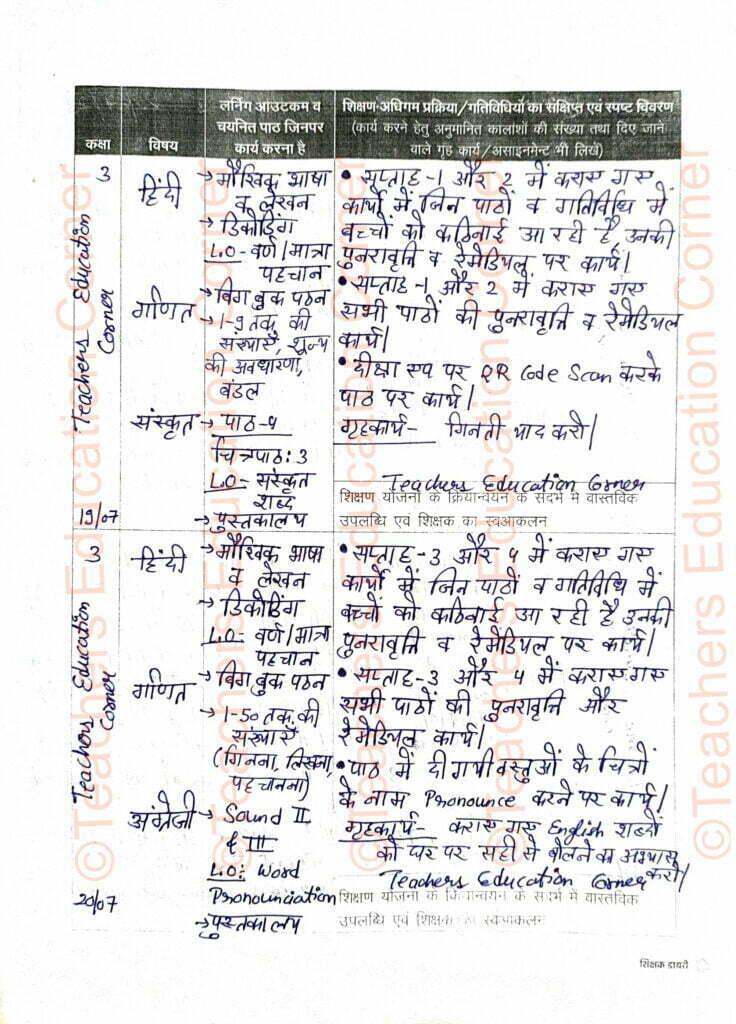 कक्षा
विषय
लर्निंग आउटकम व
चयनित पाठ जिनपर
कार्य करना है
शिक्षण-अधिगम प्रक्रिया/गतिविधियों का संक्षिप्त एवं स्पष्ट विवरण
(कार्य करने हेतु अनुमानित कालांशों की संख्या तथा दिए जाने
वाले गृह कार्य/असाइनमेन्ट भी लिखें)
3
हिंदी
→ मौखिक भाषा
व लेखन
→ डिकोडिंग
L.O- वर्ण/मात्रा
पहचान
→ बिग बुक पठन
गणित
→ 1-9 तक की
संख्याएँ, शून्य
की अवधारणा,
बंडल
संस्कृत
→ पाठ-4
चित्रपाठ: 3
L.O- संस्कृत
शब्द
→ पुस्तकालय
19/07
• सप्ताह-1 और 2 में कराए गए
कार्यों में जिन पाठों व गतिविधि में
बच्चों को कठिनाई आ रही है, उनकी
पुनरावृत्ति व रेमेडियल पर कार्य।
• सप्ताह-1 और 2 में कराए गए
सभी पाठों की पुनरावृत्ति व रेमेडियल
कार्य।
• दीक्षा एप पर QR Code Scan करके
पाठ पर कार्य।
गृहकार्य- गिनती याद करो।
Teachers Education Corner
शिक्षण योजना के क्रियान्वयन के संदर्भ में वास्तविक
उपलब्धि एवं शिक्षक का स्वआकलन
Teachers Education
Corner
3
हिंदी
→ मौखिक भाषा
व लेखन
→ डिकोडिंग
L.O- वर्ण/मात्रा
पहचान
→ बिग बुक पठन
गणित
→ 1-50 तक की
संख्याएँ
(गिनना, लिखना,
पहचानना)
अंग्रेजी
→ Sound II
& III
L.O: Word
Pronounciation
→ पुस्तकालय
20/07
• सप्ताह-3 और 4 में कराए गए
कार्यों में जिन पाठों व गतिविधि में
बच्चों को कठिनाई आ रही है उनकी
पुनरावृत्ति व रेमेडियल पर कार्य।
• सप्ताह-3 और 4 में कराए गए
सभी पाठों की पुनरावृत्ति और
रेमेडियल कार्य।
• पाठ में दी गयी वस्तुओं के चित्रों
के नाम Pronounce करने पर कार्य।
गृहकार्य- कराए गए English शब्दों
को घर पर सही से बोलने का अभ्यास
करो।
Teachers Education Corner
शिक्षण योजना के क्रियान्वयन के संदर्भ में वास्तविक
उपलब्धि एवं शिक्षक का स्वआकलन
Teachers Education
Corner
शिक्षक डायरी
©Teachers Education Corner
©Teachers Education Corner
©Teachers Education Corner
©Teachers Education Corner